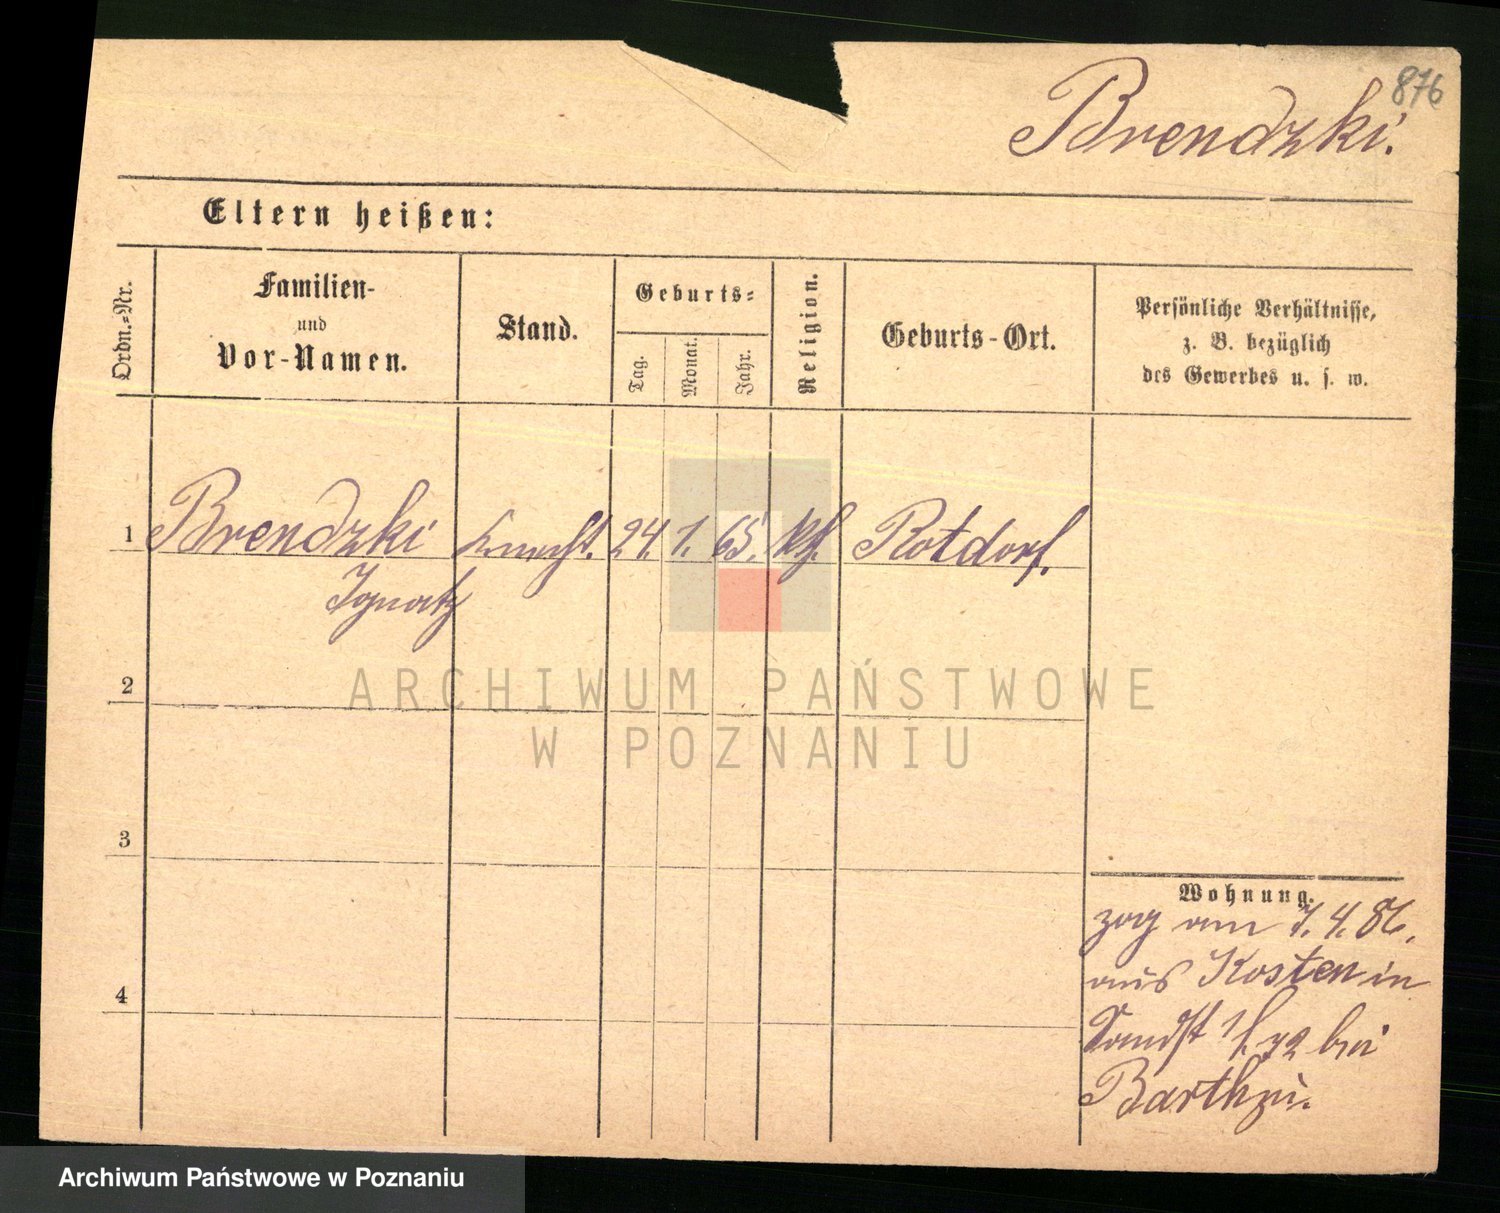 876
Brendzki.
Eltern heißen:
Ordn.-Nr.
Familien-
und
Vor-Namen.
Stand.
Geburts-
Tag.
Monat.
Jahr.
Religion.
Geburts-Ort.
Persönliche Verhältnisse,
z. B. bezüglich
des Gewerbes u. s. w.
1 Brendzki Knecht. 24. 1. 65. kth. Rotdorf.
Ignatz
2
3
4
Wohnung.
zog am 7. 4. 86.
aus Kosten in
Sandst 1/72 bei
ARCHIWUM PAŃSTWOWE
W POZNANIU
Archiwum Państwowe w Poznaniu